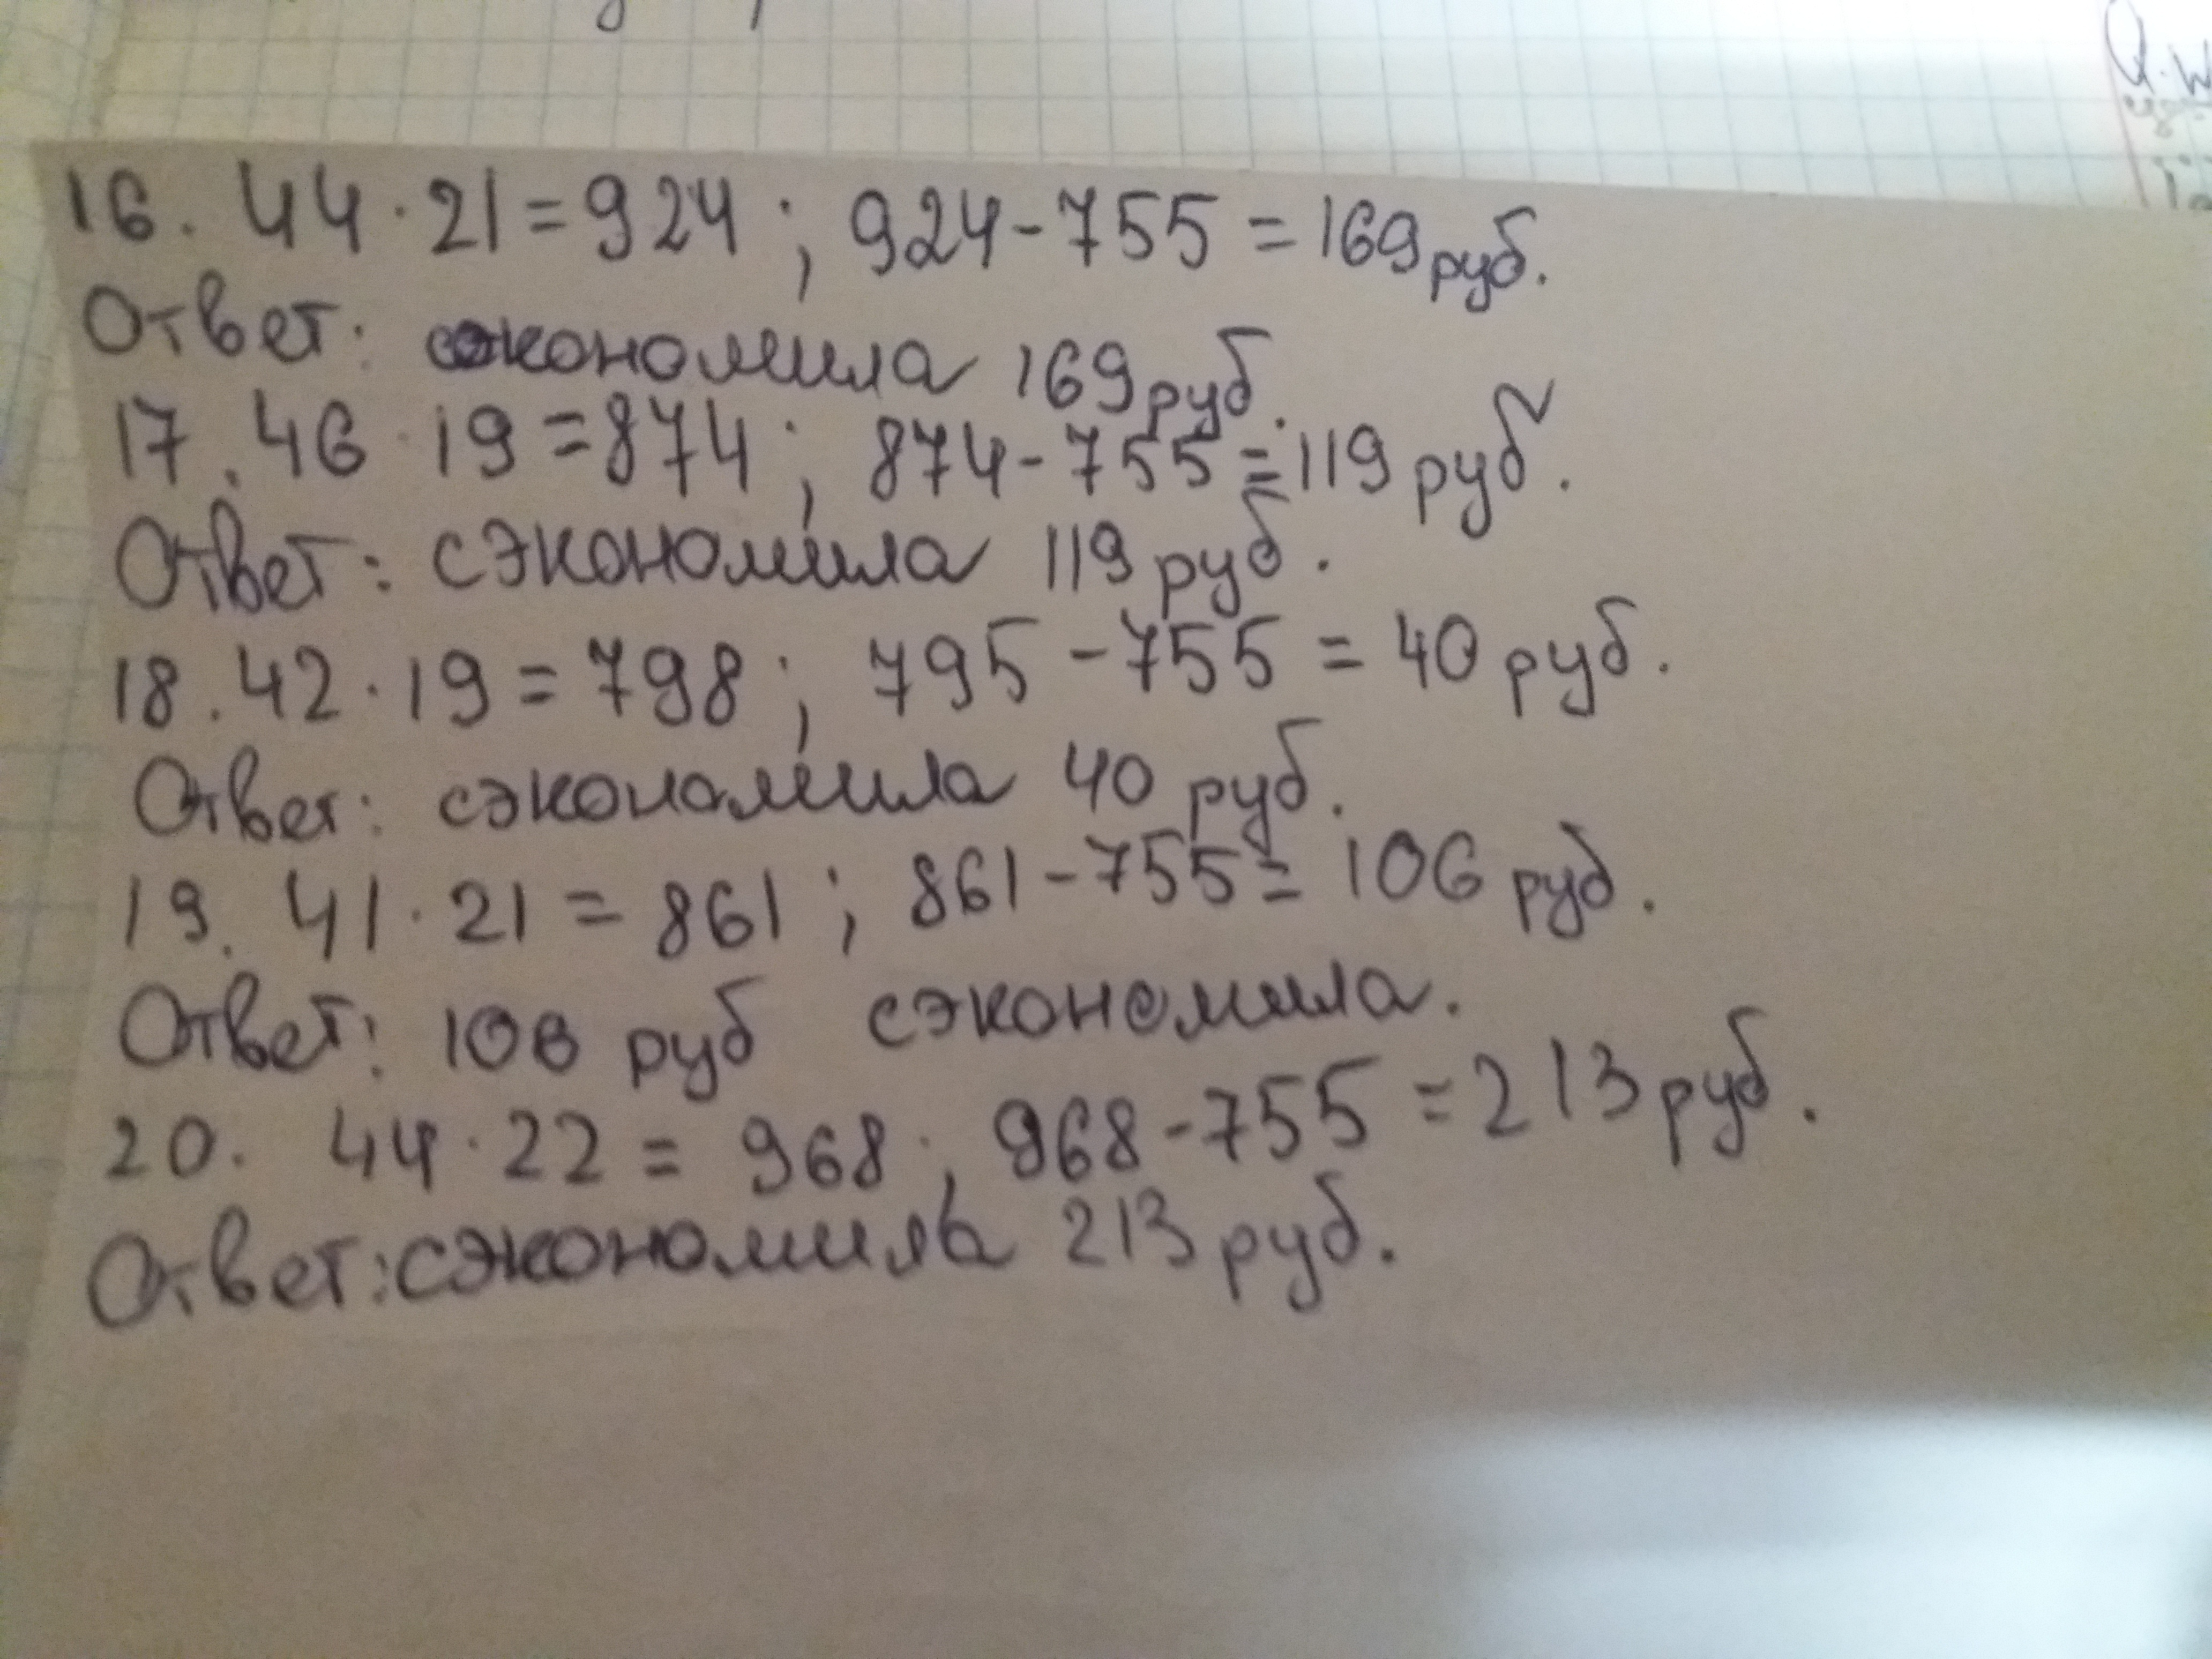 16. 44 · 21 = 924 ; 924 - 755 = 169 руб.
Ответ: сэкономила 169 руб.
17. 46 · 19 = 874 ; 874 - 755 = 119 руб.
Ответ: сэкономила 119 руб.
18. 42 · 19 = 798 ; 795 - 755 = 40 руб.
Ответ: сэкономила 40 руб.
19. 41 · 21 = 861 ; 861 - 755 = 106 руб.
Ответ: 106 руб сэкономила.
20. 44 · 22 = 968 ; 968 - 755 = 213 руб.
Ответ: сэкономила 213 руб.